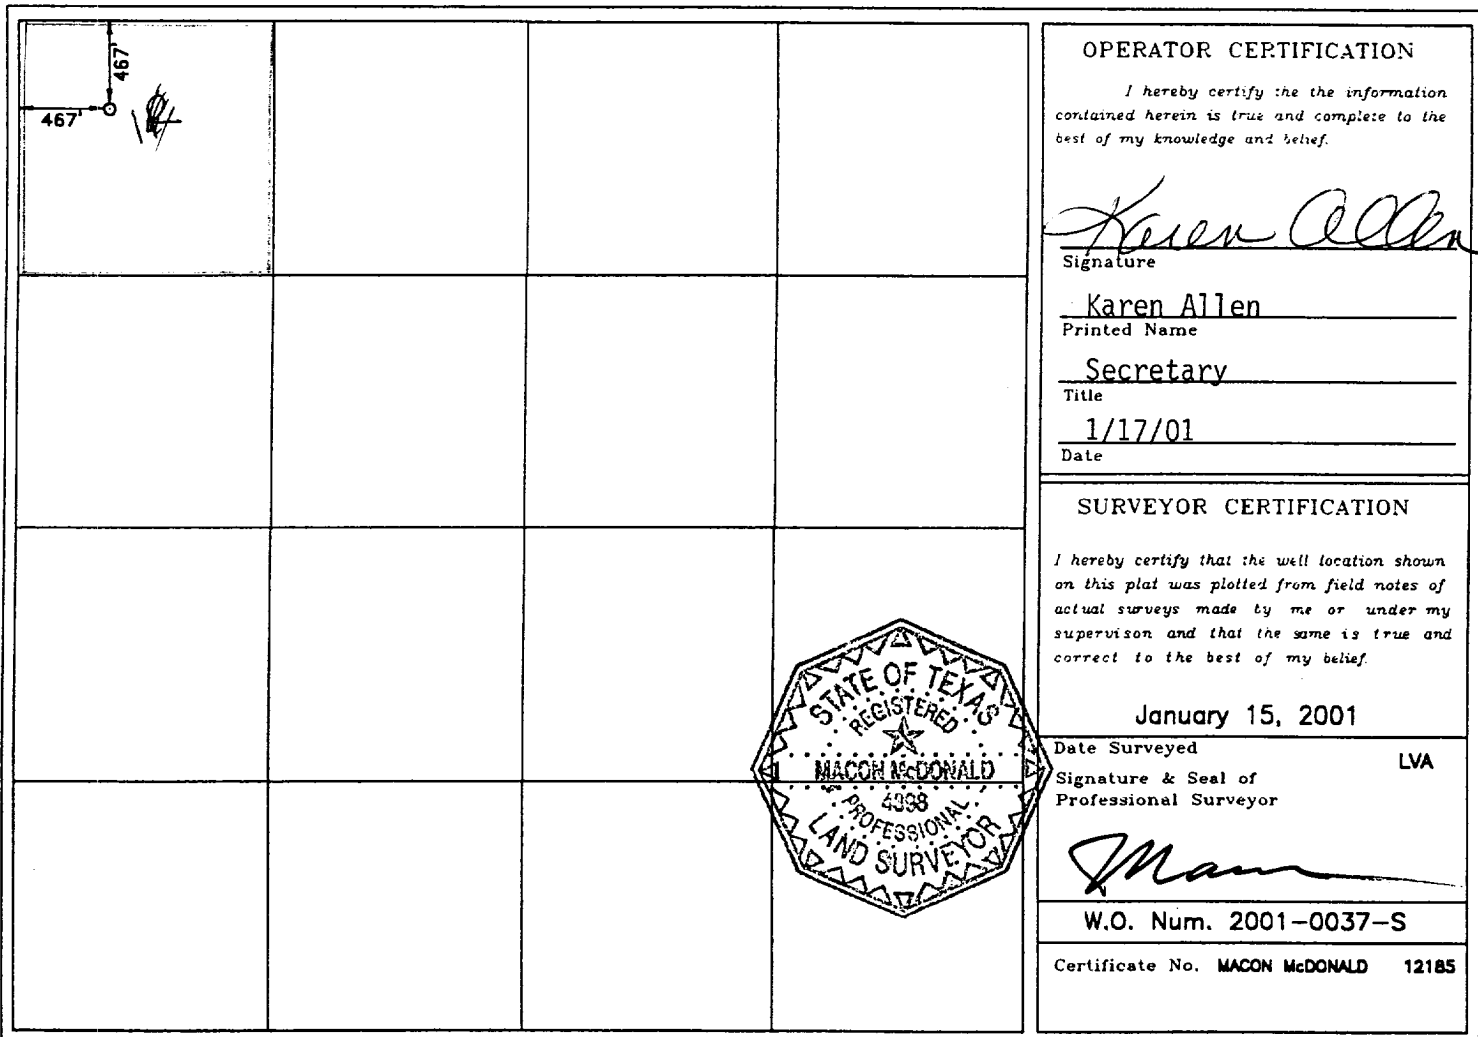 467'
467'
OPERATOR CERTIFICATION
I hereby certify the the information
contained herein is true and complete to the
best of my knowledge and belief.
Karen Allen
Signature
Karen Allen
Printed Name
Secretary
Title
1/17/01
Date
SURVEYOR CERTIFICATION
I hereby certify that the well location shown
on this plat was plotted from field notes of
actual surveys made by me or under my
supervison and that the same is true and
correct to the best of my belief.
January 15, 2001
Date Surveyed LVA
Signature & Seal of
Professional Surveyor
W.O. Num. 2001-0037-S
Certificate No. MACON McDONALD 12185
STATE OF TEXAS
REGISTERED
MACON McDONALD
PROFESSIONAL
LAND SURVEYOR